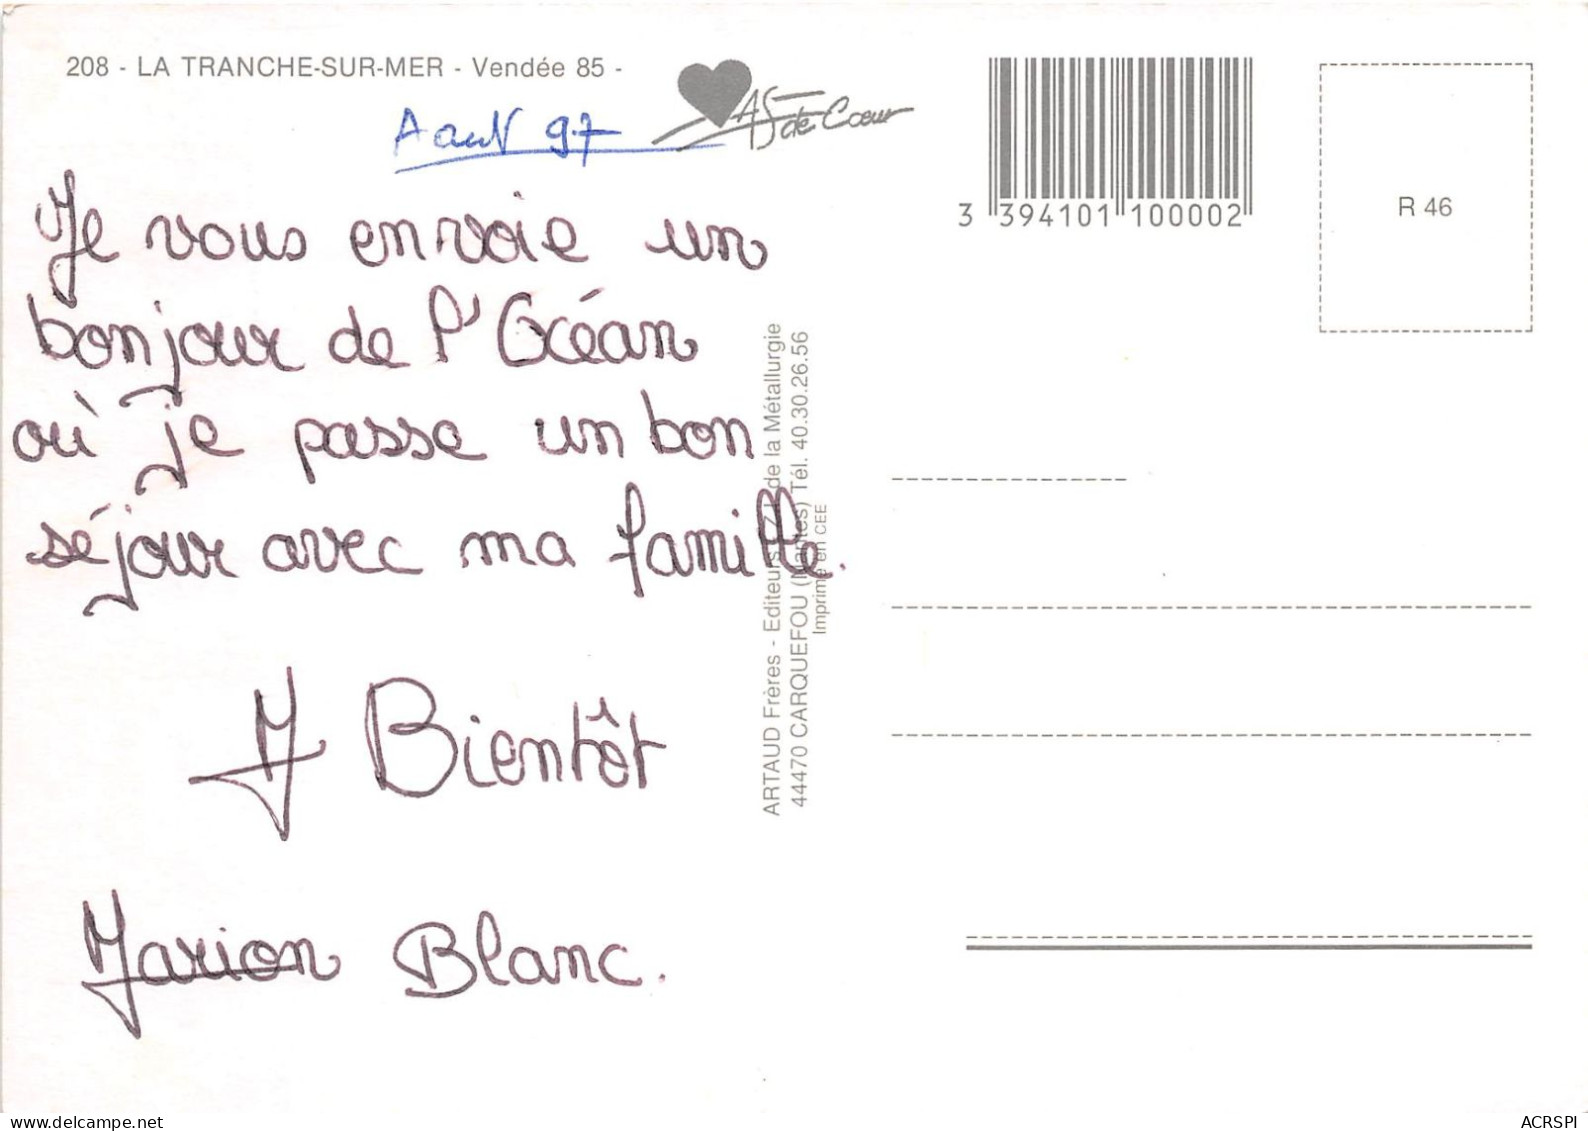 208 - LA TRANCHE-SUR-MER - Vendée 85 -
Aout 97
AS de Cœur
3 394101 100002
R 46
Je vous envoie un
bonjour de l'Océan
où je passe un bon
séjour avec ma famille.
A Bientôt
Marion Blanc.
ARTAUD Frères - Editeurs Z.I. de la Métallurgie
44470 CARQUEFOU (Nantes) Tél. 40.30.26.56
Imprimé en CEE
ACRSPI